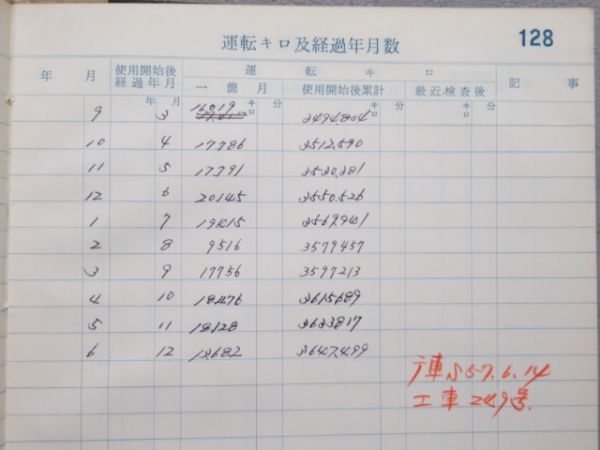 128
運転キロ及経過年月数
年 月 使用開始後経過年月 運転キロ 記事
一箇月 使用開始後累計 最近検査後
年 月 キロ 分 キロ 分 キロ 分
9 3 16019
10 4 17786 3512,590
11 5 17791
12 6 20145 3550,526
1 7 19415
2 8 9516 3579457
3 9 17756 3597213
4 10 18476 3615689
5 11 18128 3633817
6 12 13682 3647,499
S57.6.14
工車 289号